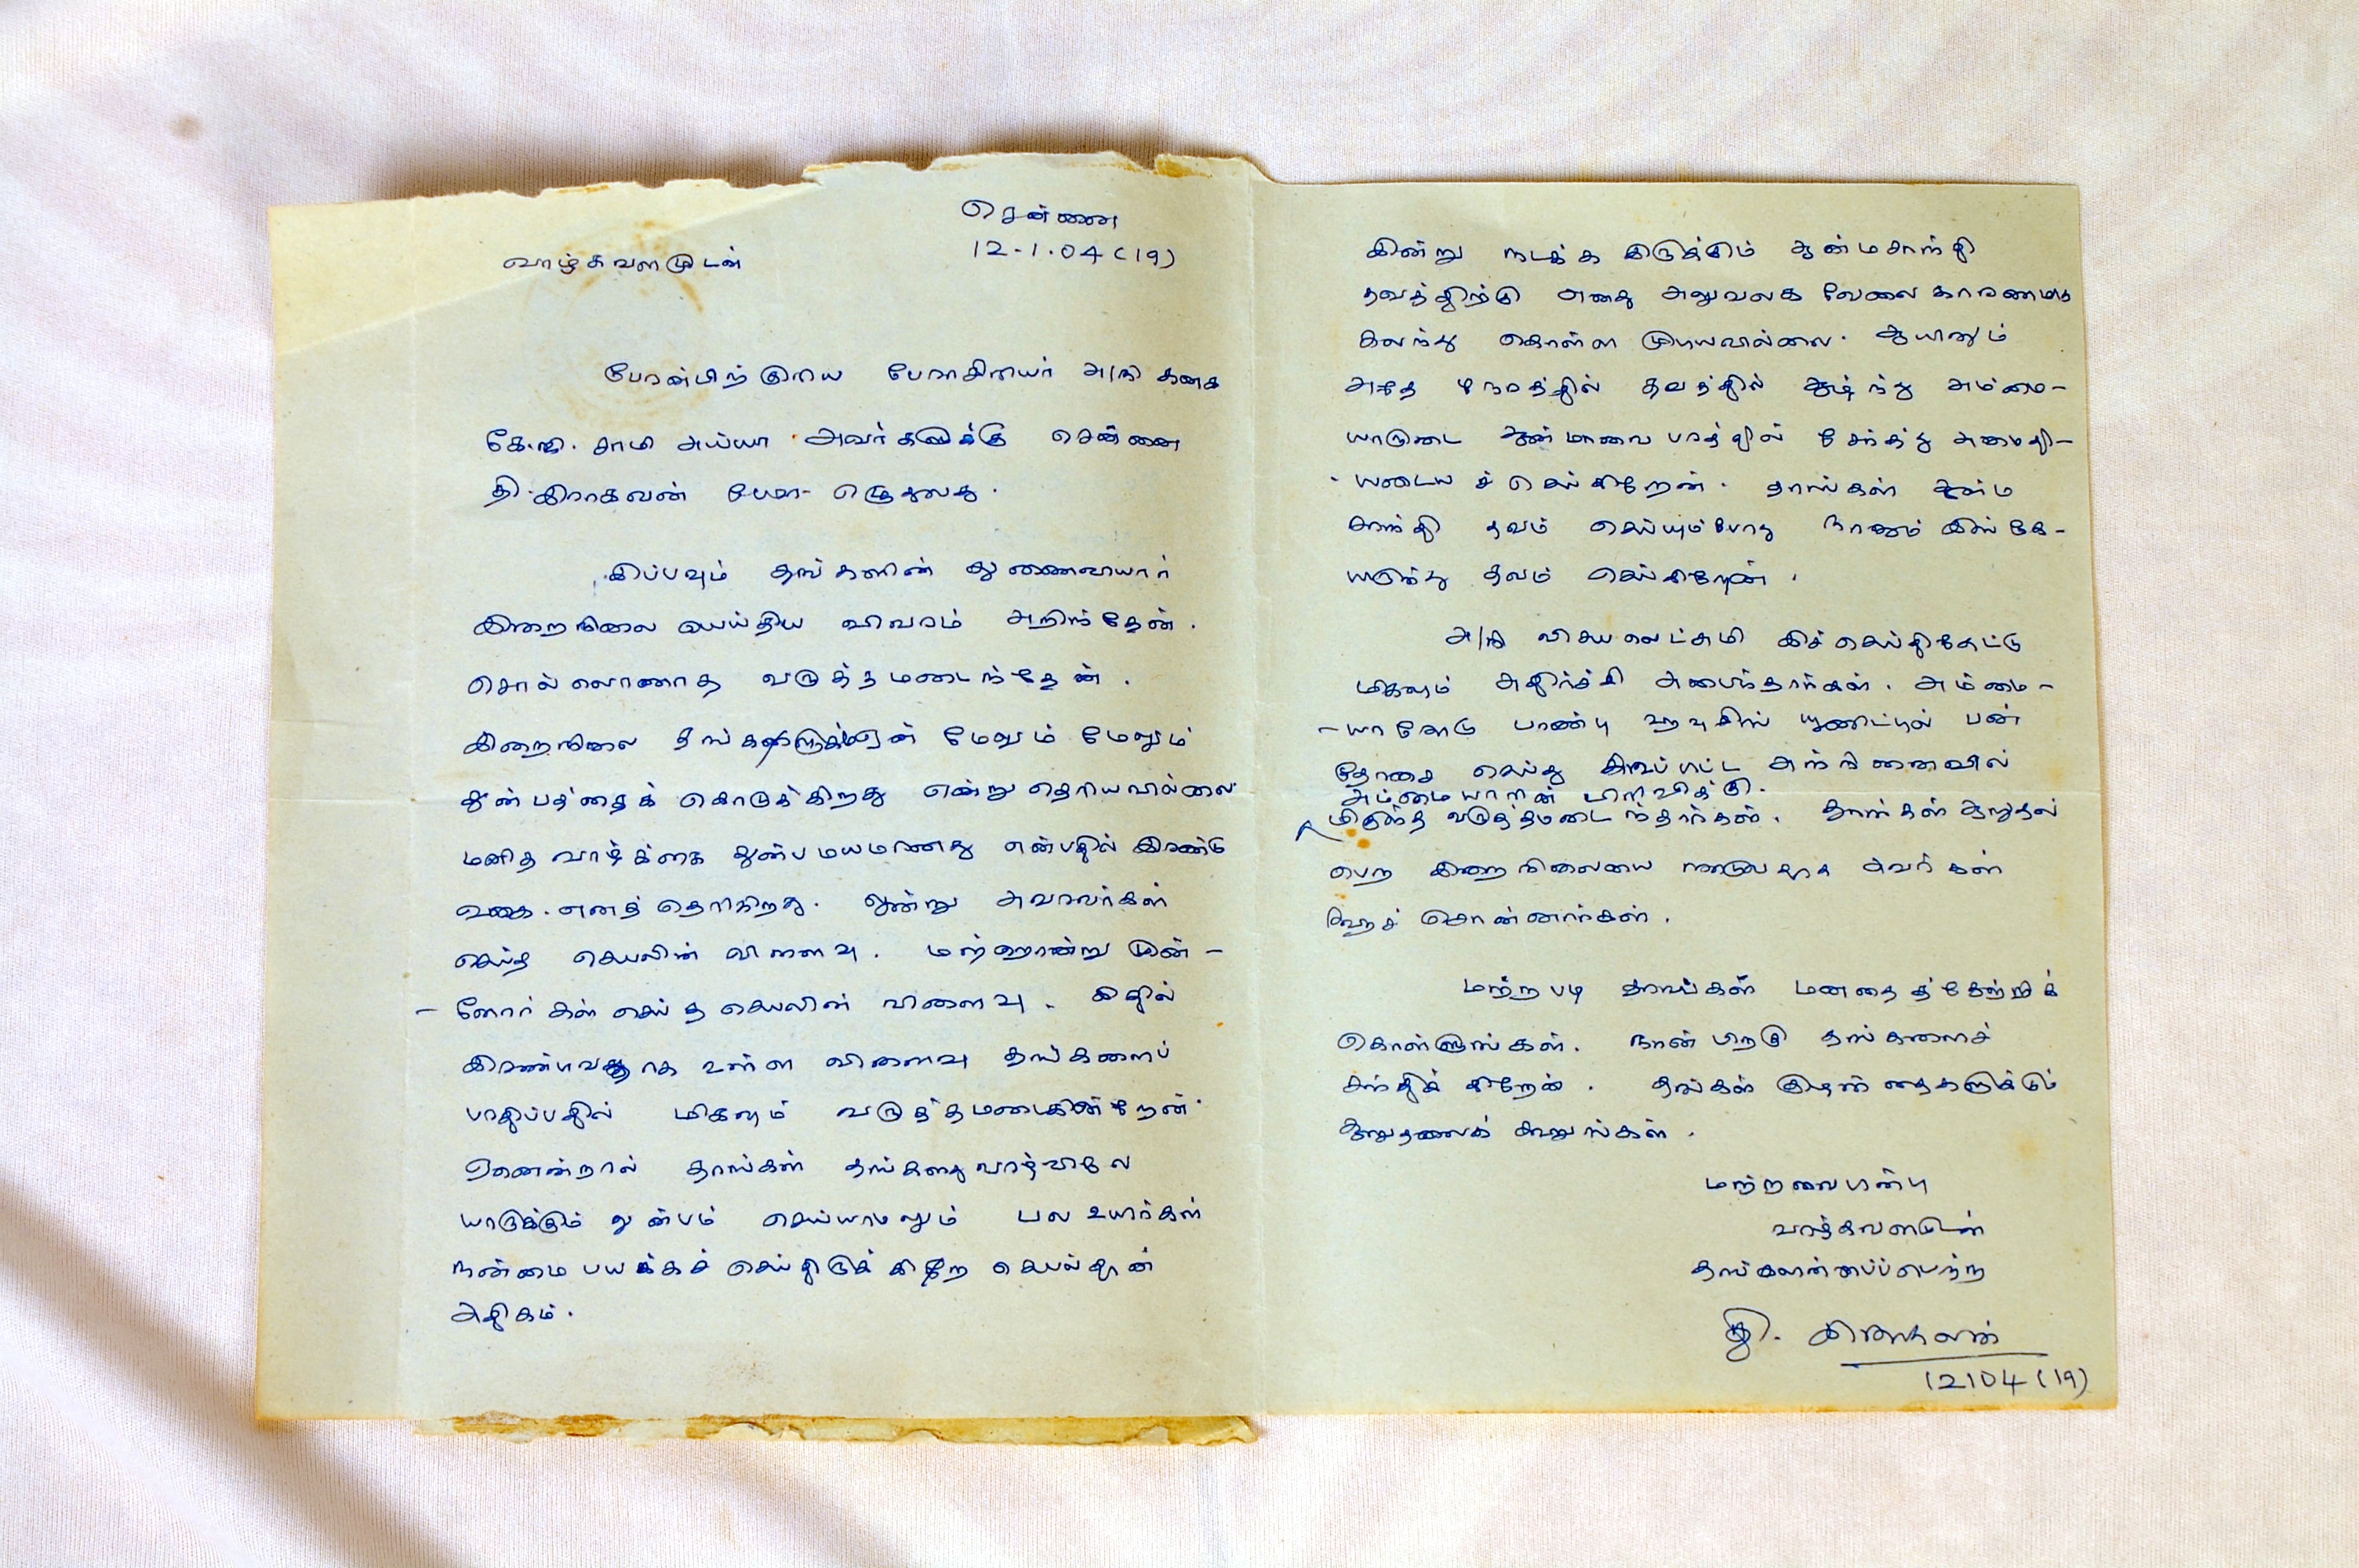 சென்னை
12-1.04 (19)
வாழ்கவளமுடன்
பேரன்பிற்குரிய பேராசிரியர் அ/நி கனக
கே.ஜி. சாமி அய்யா அவர்களுக்கு சென்னை
தி. இராகவன் எழுதுவது.
இப்பவும் தங்களின் துணைவியார்
இறைநிலை யெய்திய விவரம் அறிந்தேன்.
சொல்லொணாத வருத்தமடைந்தேன்.
இறைநிலை மேலும் மேலும்
துன்பத்தைக் கொடுக்கிறது என்று தெரியவில்லை
மனித வாழ்க்கை துன்பமயமானது என்பதில் இரண்டு
வகை. எனத் தெரிகிறது. ஒன்று அவரவர்கள்
செய்த செயலின் விளைவு. மற்றொன்று முன்-
- னோர்கள் செய்த செயலின் விளைவு. இதில்
இரண்டாவதாக உள்ள விளைவு தங்களைப்
பாதிப்பதில் மிகவும் வருத்தமடைகின்றேன்.
ஏனென்றால் தாங்கள் தங்களது வாழ்விலே
யாருக்கும் துன்பம் செய்யாமலும் பல உயிர்கள்
நன்மை பயக்கச் செய்திருக்கிற செயல்தான்
அதிகம்.
இன்று நடக்க இருக்கும் ஆன்மசாந்தி
தவத்திற்கு எனது அலுவலக வேலை காரணமாக
கலந்து கொள்ள முடியவில்லை. ஆயினும்
அதே நேரத்தில் தவத்தில் ஆழ்ந்து அம்மை-
யாருடைய ஆன்மாவை வானத்தில் சேர்த்து அமைதி-
- யடையச் செய்கிறேன். தாங்கள் ஆன்ம
சாந்தி தவம் செய்யும்போது நானும் இங்கே-
யிருந்து தவம் செய்கிறேன்.
அ/நி விசயலெட்சுமி இச்செய்திகேட்டு
மிகவும் அதிர்ச்சி அடைந்தார்கள். அம்மை-
- யாரோடு பாண்டி ஹவுசிங் யூனிட்டில் பன்
தோசை செய்து சாப்பிட்ட அந்நினைவில்
அம்மையாரின் பிரிவிக்கு.
மிகுந்த வருத்தமடைந்தார்கள். தாங்கள் ஆறுதல்
பெற இறைநிலையை நாடுவதாக அவர்கள்
கூறச் சொன்னார்கள்.
மற்றபடி தாங்கள் மனதைத் தேற்றிக்
கொள்ளுங்கள். நான் பிறகு தங்களைச்
சந்திக்கிறேன். தங்கள் குழந்தைகளுக்கும்
ஆறுதலைக் கூறுங்கள்.
மற்றவை பின்பு
வாழ்கவளமுடன்
தங்களன்பைப்பெற்ற
தி. இராகவன்
12104 (19)